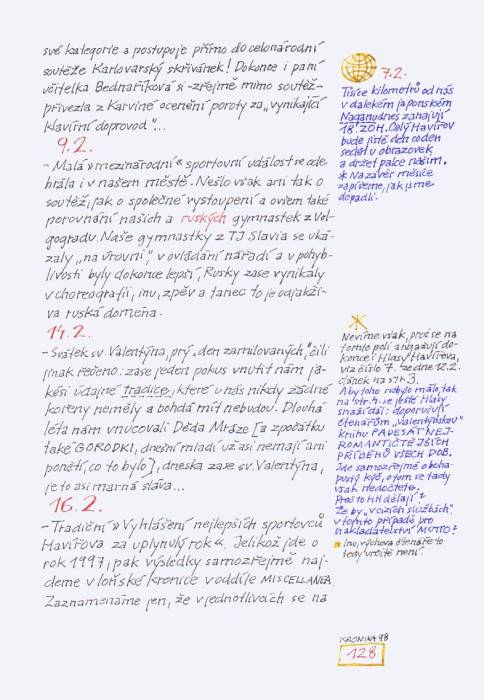 své kategorie a postupuje přímo do celonárodní
soutěže Karlovarský skřivánek! Dokonce i paní
učitelka Bednaříková si -zřejmě mimo soutěž-
přivezla z Karviné ocenění poroty za „vynikající
klavírní doprovod"...
9.2.
- Malá »mezinárodní« sportovní událost se ode-
hrála i v našem městě. Nešlo však ani tak o
soutěž, jak o společné vystoupení a ovšem také
porovnání našich a ruských gymnastek z Vol-
gogradu. Naše gymnastky z TJ Slavia se uká-
zaly „na úrovni", v ovládání nářadí a v pohyb-
livosti byly dokonce lepší, Rusky zase vynikaly
v choreografii, inu, zpěv a tanec to je odjakži-
va ruská doména.
14.2.
- Svátek sv. Valentýna, prý „den zamilovaných", čili
jinak řečeno: zase jeden pokus vnutit nám ja-
kési údajné tradice, které u nás nikdy žádné
kořeny neměly a bohdá mít nebudou. Dlouhá
léta nám vnucovali Děda Mráze [a zpočátku
také GORODKI, dnešní mladí už asi nemají ani
ponětí, co to bylo], dneska zase sv. Valentýna,
je to asi marná sláva...
16.2.
- Tradiční » Vyhlášení nejlepších sportovců
Havířova za uplynulý rok«. Jelikož jde o
rok 1997, pak výsledky samozřejmě naj-
deme v loňské kronice v oddíle MISCELLANEA
Zaznamenáme jen, že v jednotlivcích se na
7.2.
Tisíce kilometrů od nás
v dalekém japonském
Naganu dnes zahajují
18. ZOH. Celý Havířov
bude jistě den co den
sedět u obrazovek
a držet palce našim.
* Na závěr měsíce
zapíšeme, jak jsme
dopadli.
Nevíme však, proč se na
tomto poli angažují do-
konce i Hlasy Havířova,
viz číslo 7. ze dne 12.2.
článek na str. 3.
Aby toho nebylo málo, tak
na str. 4. se ještě Hlasy
snaží dál: doporučují
čtenářům „Valentýnskou"
knihu PADESÁT NEJ-
ROMANTIČTĚJŠÍCH
PŘÍBĚHŮ VŠECH DOB.
Jde samozřejmě o boha-
pustý kýč, o tom se tady
však nedočtete.
Proč to HH dělají?
Že by „v cizích službách",
v tomto případě pro
nakladatelství MOTTO?
Inu, výchova čtenáře to
tedy určitě není.
KRONIKA 98
128